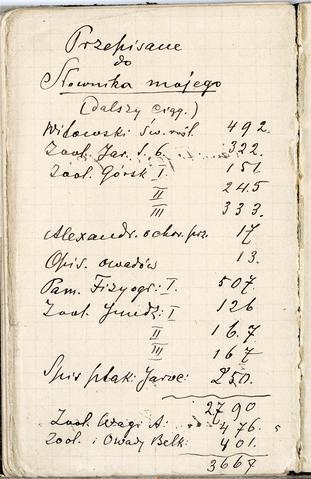 Przepisane
do
Słownika mojego
(dalszy ciąg.)
Witowski św. rośl 492.
Zool. Jar. S. 6. 322.
Zool. Górsk I. 151.
II 245
III 333.
Alexandr. ochr. prz. 17
Opis. owadów 13.
Pam. Fizyogr: I. 507.
Zool. I 126
II 167
III 167
Spis ptak: Jaroc: 250.
2790
Zool. Wagi A: 476.
Zool. i Owady Belk: 401.
3667